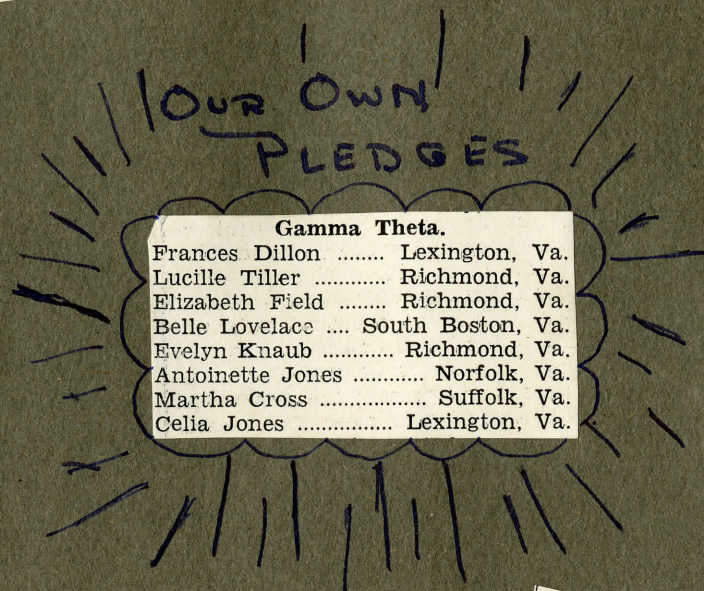 OUR OWN
PLEDGES
Gamma Theta.
Frances Dillon ........ Lexington, Va.
Lucille Tiller ............ Richmond, Va.
Elizabeth Field ........ Richmond, Va.
Belle Lovelace .... South Boston, Va.
Evelyn Knaub ............ Richmond, Va.
Antoinette Jones ............ Norfolk, Va.
Martha Cross .................. Suffolk, Va.
Celia Jones ................ Lexington, Va.